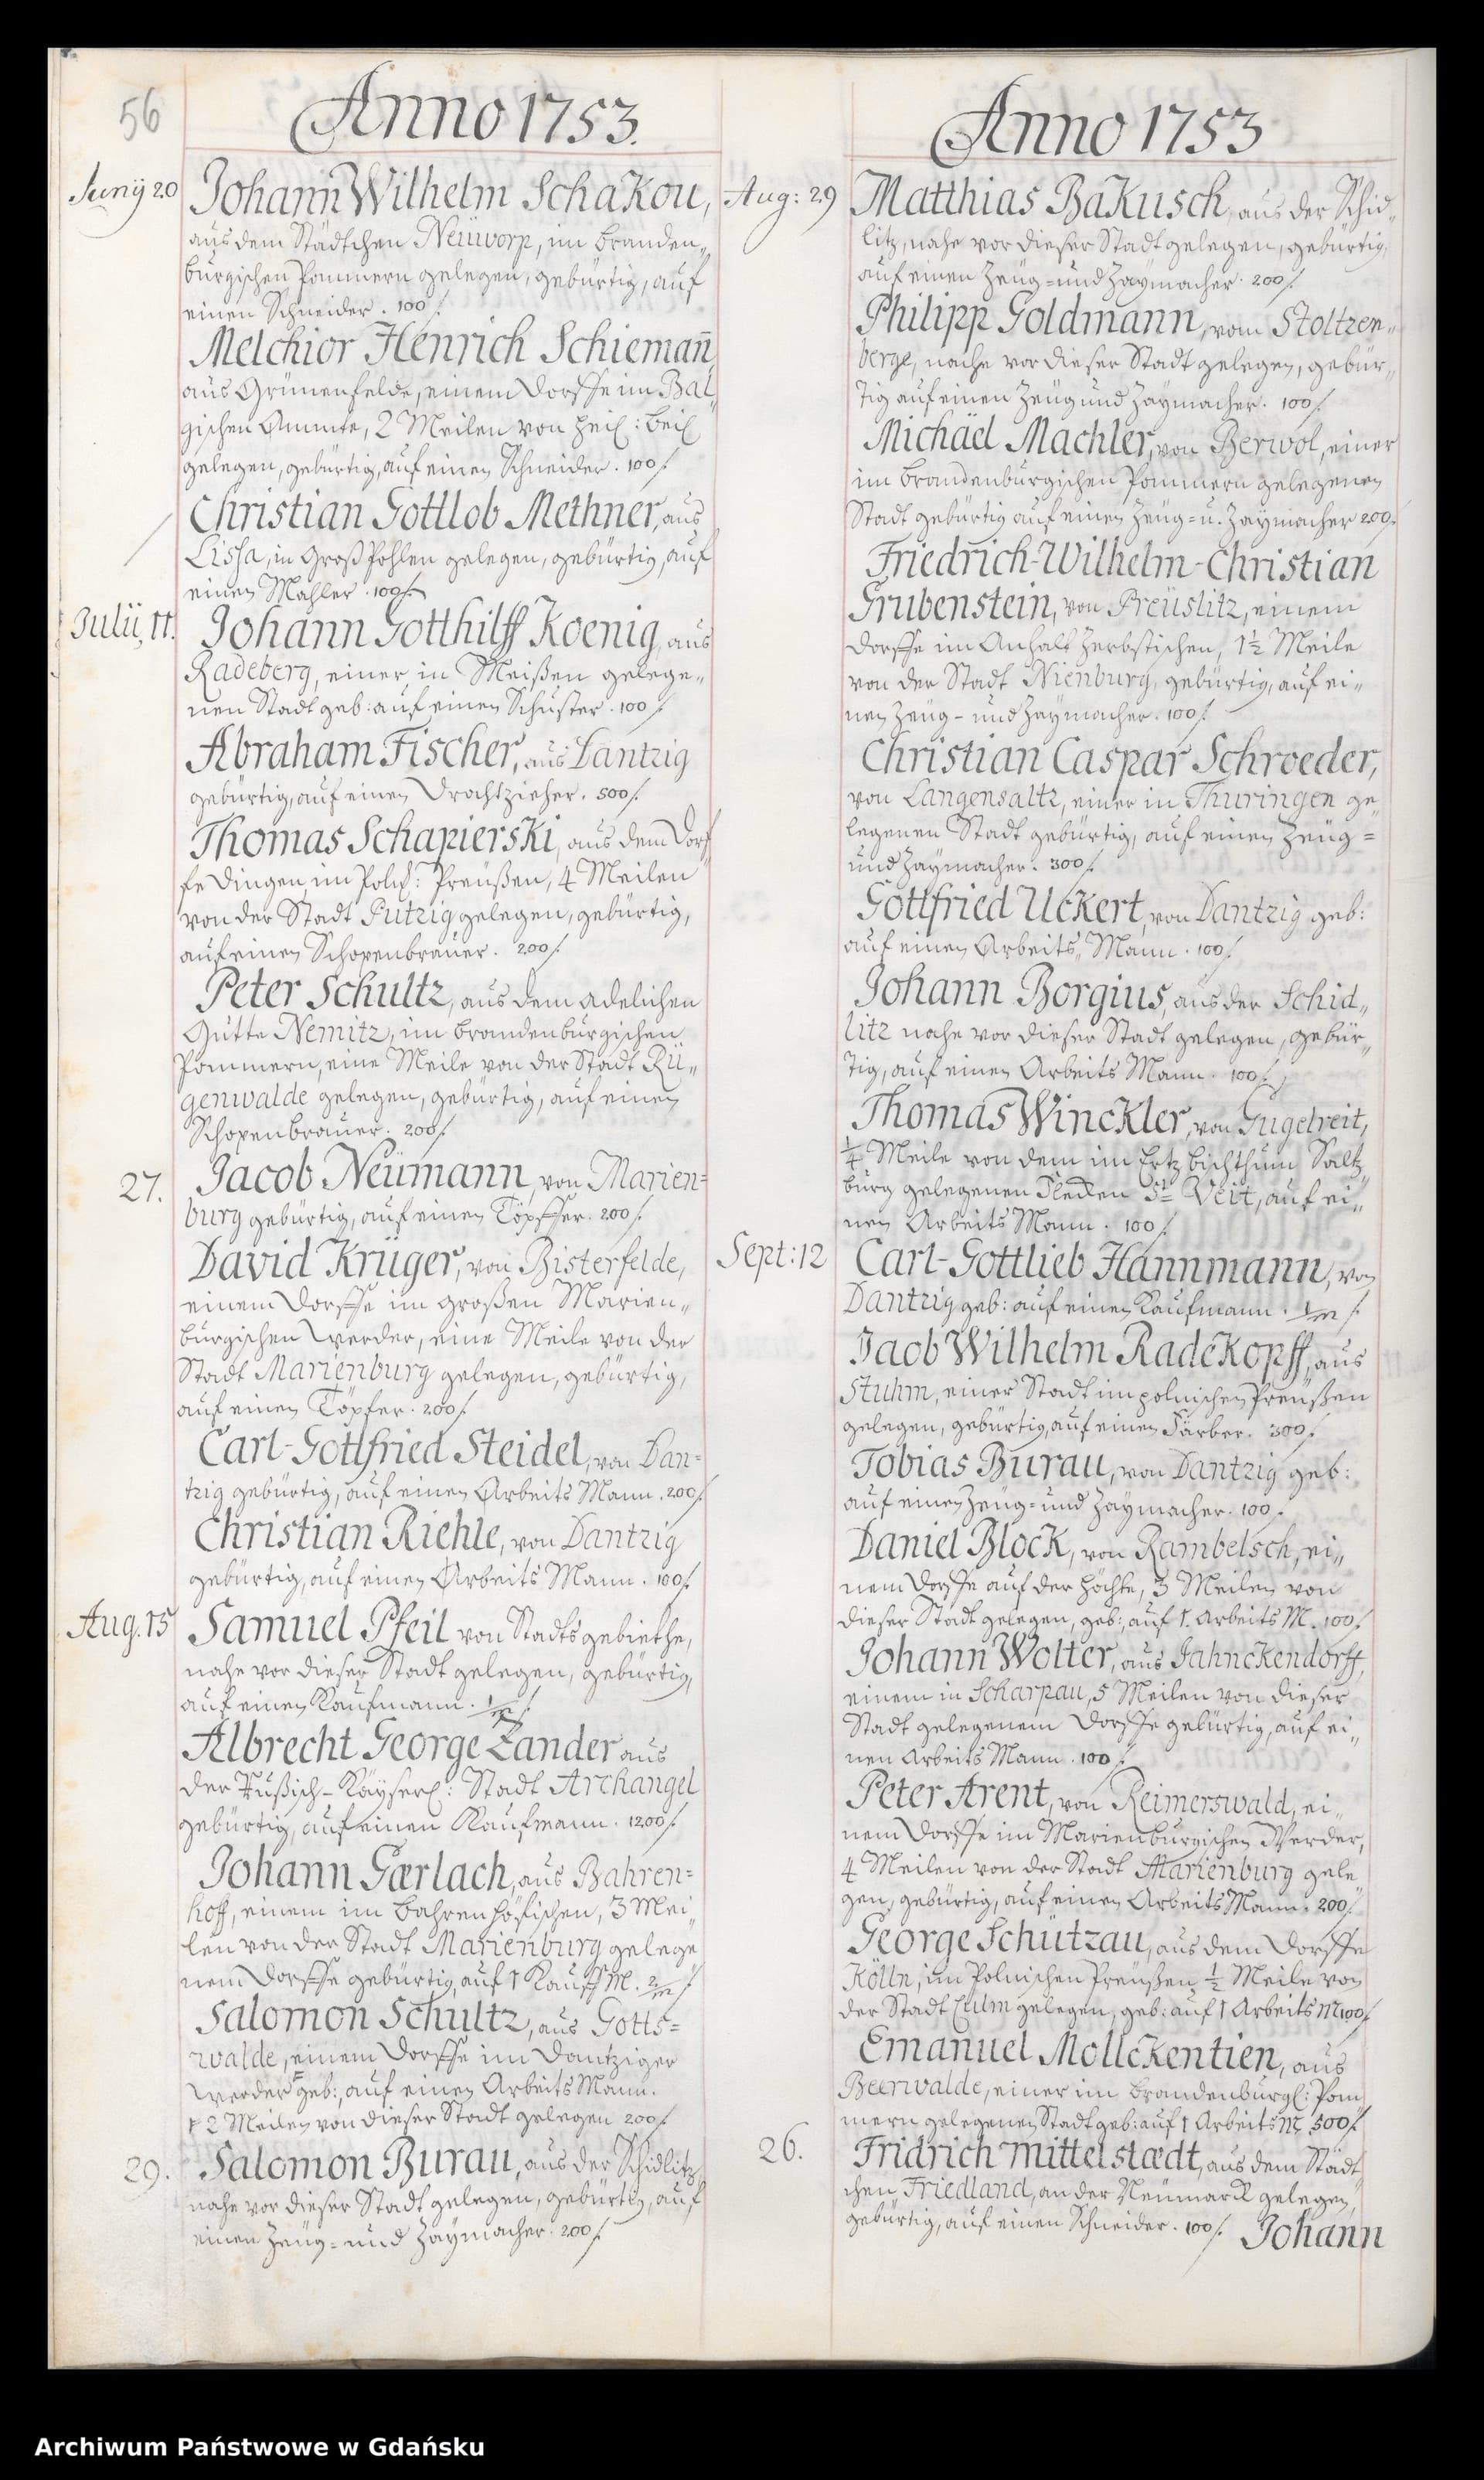 56
Anno 1753.
Junij 20
Johann Wilhelm Schakou,
aus dem Städtchen Neüworp, im branden„
burgischen Pommern gelegen, gebürtig, auf
einen Schneider. 100 f.
Melchior Henrich Schiemañ
aus Grünenfelde, einem Dorffe im Bal„
gischen Ammte, 2 Meilen von Heil: beil
gelegen, gebürtig, auf einen Schneider. 100 f.
Christian Gottlob Methner, aus
Lissa, in Groß Pohlen gelegen, gebürtig, auf
einen Mahler. 100 f.
Julii, 11.
Johann Gotthilff Koenig, aus
Radeberg, einer in Meißen gelege„
nen Stadt geb: auf einen Schuster. 100 f.
Abraham Fischer, aus Dantzig
gebürtig, auf einen Drachtzieher. 500 f.
Thomas Schapierski, aus dem Dorf
fe Dingen im Polch: Preußen, 4 Meilen
von der Stadt Putzig gelegen, gebürtig,
auf einen Schopenbreuer. 200 f.
Peter Schultz, aus dem adelichen
Gutte Nemitz, im brandenburgischen
Pommern, eine Meile von der Stadt Rü„
genwalde gelegen, gebürtig, auf einen
Schopenbrauer. 200 f.
27.
Jacob Neümann, von Marien=
burg gebürtig, auf einen Töpffer. 200 f.
David Krüger, von Bisterfelde,
einem Dorffe im großen Marien„
burgischen Werder, eine Meile von der
Stadt Marienburg gelegen, gebürtig,
auf einen Töpfer. 200 f.
Carl-Gottfried Steidel, von Dan=
tzig gebürtig, auf einen Arbeits Mann. 200 f.
Christian Riehle, von Dantzig
gebürtig, auf einen Arbeits Mann. 100 f.
Aug. 15
Samuel Pfeil von Stadts gebiethe,
nahe vor dieser Stadt gelegen, gebürtig,
auf einen Kaufmann. 1/m f.
Albrecht George Zander aus
der Rußisch-Käyserl: Stadt Archangel
gebürtig, auf einen Kaufmann. 1200 f.
Johann Gærlach, aus Bahren=
hoff, einem im Bahrenhöfischen, 3 Mei„
len von der Stadt Marienburg gelege
nem Dorffe gebürtig, auf 1 Kauff M. 2/m f.
Salomon Schultz, aus Gotts=
walde, einem Dorffe im Dantziger
Werder geb:, auf einen Arbeits Mann.
2 Meilen von dieser Stadt gelegen 200 f.
29.
Salomon Burau, aus der Schidlitz
nahe vor dieser Stadt gelegen, gebürtig, auf
einen Zeug= und Zaymacher. 200 f.
Anno 1753
Aug: 29
Matthias Bakusch, aus der Schid„
litz, nahe vor dieser Stadt gelegen, gebürtig,
auf einen Zeug= und Zaymacher. 200 f.
Philipp Goldmann, vom Stoltzen„
berge, nache vor dieser Stadt gelegen, gebür„
tig auf einen Zeug und Zaymacher. 100 f.
Michäel Machler, von Berwol, einer
im brandenburgischen Pommern gelegenen
Stadt gebürtig auf einen Zeug= u. Zaymacher 200 f.
Friedrich-Wilhelm-Christian
Grubenstein, von Preüslitz, einem
Dorffe im Anhalt Zerbstischen, 1½ Meile
von der Stadt Nienburg, gebürtig, auf ei„
nen Zeug- und Zaymacher. 100 f.
Christian Caspar Schroeder,
von Langensaltz, einer in Thuringen ge„
legenen Stadt gebürtig, auf einen Zeug=
und Zaymacher. 300 f.
Gottfried Uckert, von Dantzig geb:
auf einen Arbeits Mann. 100 f.
Johann Borgius, aus der Schid„
litz nahe vor dieser Stadt gelegen, gebür„
tig, auf einen Arbeits Mann. 100 f.
Thomas Winckler, von Gugelreit,
¼ Meile von dem im Ertzbischthum Saltz„
burg gelegenen Flecken St Veit, auf ei„
nen Arbeits Mann. 100 f.
Sept: 12
Carl-Gottlieb Hannmann, von
Dantzig geb: auf einen Kaufmann. 1/m f.
Jacob Wilhelm Radekopff, aus
Stuhm, einer Stadt im polnischen Preußen
gelegen, gebürtig, auf einen Färber. 300 f.
Tobias Burau, von Dantzig geb:
auf einen Zeug= und Zaymacher. 100 f.
Daniel Block, von Rambelsch, ei„
nem Dorffe auf der Höchte, 3 Meilen von
dieser Stadt gelegen, geb:, auf 1. Arbeits M. 100 f.
Johann Wolter, aus Jahnckendorff,
einem in Scharpau, 5 Meilen von dieser
Stadt gelegenem Dorffe gebürtig, auf ei„
nen Arbeits Mann. 100 f.
Peter Arent, von Reimerswald, ei„
nem Dorffe im Marienburgischen Werder,
4 Meilen von der Stadt Marienburg gele„
gen, gebürtig, auf einen Arbeits Mann. 200 f.
George Schützau, aus dem Dorffe
Kölln, im Polnischen Preußen ½ Meile von
der Stadt Culm gelegen, geb: auf 1 Arbeits M 100 f.
Emanuel Mollckentien, aus
Beerwalde, einer im brandenburgl: Pom„
mern gelegenen Stadt geb: auf 1 Arbeits M. 500 f.
26.
Fridrich Mittelstædt, aus dem Städt„
chen Friedland, an der Neumarck gelegen,
gebürtig, auf einen Schneider. 100 f.
Johann
Archiwum Państwowe w Gdańsku